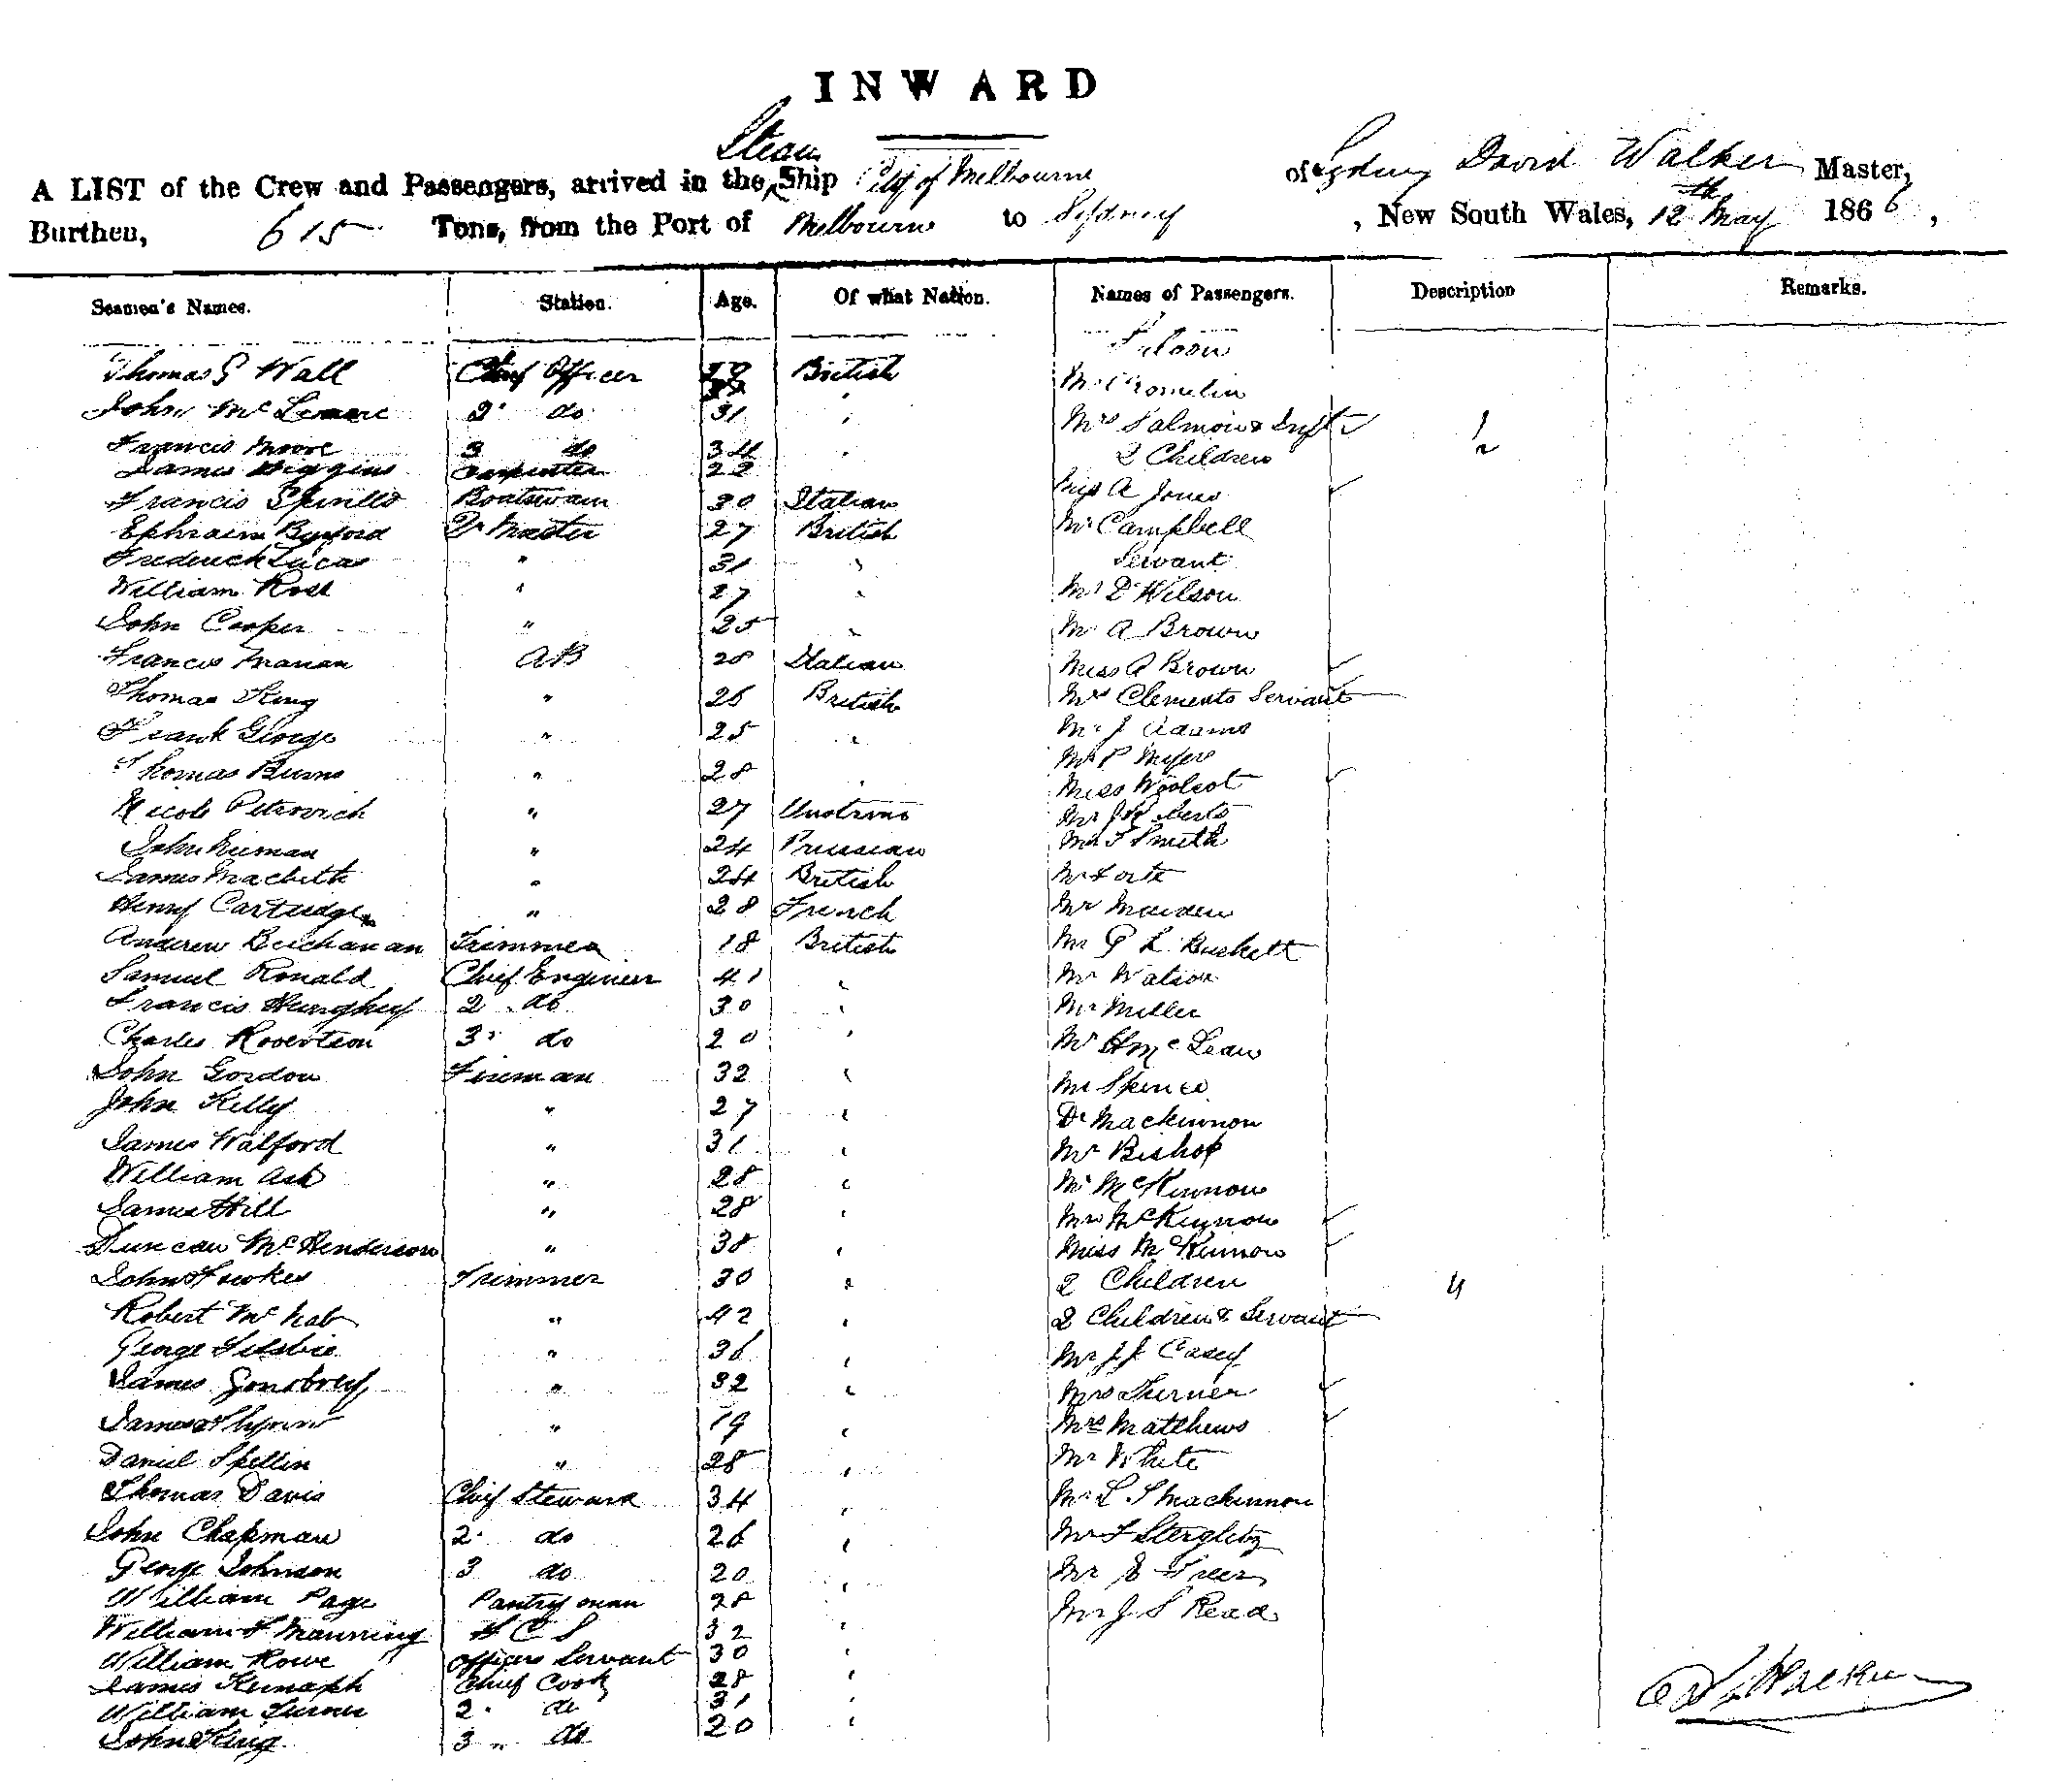 INWARD
Steam
A LIST of the Crew and Passengers, arrived in the Ship City of Melbourne of Sydney David Walker Master,
Burthen, 615 Tons, from the Port of Melbourne to Sydney , New South Wales, 12th May 1866 ,
Seamen's Names. Station. Age. Of what Nation. Names of Passengers. Description Remarks.
Saloon
Thomas G Wall Chief Officer British Mr Cromelin
John Mc 2 do 31 " Mrs Salmon & Inft 1
Francis Moore 3 do 34 " 2 Children 2
James Higgins Carpenter 22
Francis Boatswain 30 Italian Miss A Jones
Ephraim Byford Qr Master 27 British Mr Campbell
Frederick Lucas " 31 " Servant
William Rose " 27 " Mr D Wilson
John Cooper " 25 " Mr A Brown
Francis Marian AB 28 Italian Miss A Brown
Thomas King " 26 British Mrs Clements Servant
Frank George " 25 " Mr J Adams
Thomas Burns " 28 " Mr P Myers
Miss Woolcot
Nicole Petrovich " 27 Austrian Mr J Roberts
John Neuman " 24 Prussian Mr T Smith
James Macbeth " 24 British Mr Forte
Henry Cartridge " 28 French Mr Maiden
Andrew Buchanan Trimmer 18 British Mr G L Buskett
Samuel Ronald Chief Engineer 41 " Mr Watson
Francis Hunghey 2 do 30 " Mr Miller
Charles Robertson 3 do 20 " Mr H McLean
John Gordon Fireman 32 " Mr Spence
John Kelly " 27 " Dr Mackinnon
James Walford " 31 " Mr Bishop
William Ash " 28 " Mr McKinnon
James Hill " 28 " Mrs McKinnon
Duncan McHenderson " 38 " Miss McKinnon
John Fawkes Trimmer 30 " 2 Children 4
Robert McNab " 42 " 2 Children & Servant
George " 36 " Mr J J Casey
James " 32 " Mrs Turner
James Flynn " 19 " Mrs Matthews
Daniel Spellin " 28 " Mr White
Thomas Davis Chief Steward 34 " Mr L S Mackinnon
John Chapman 2 do 26 " Mr F Sterglitz
George Johnson 3 do 20 " Mr E Freer
William Page Pantryman 28 " Mr J S Read
William F Manning F C S 32 "
William Rowe Officers Servant 30 "
James Chief Cook 28 "
William Turner 2 do 31 "
John King 3 " do 20 "
Walker